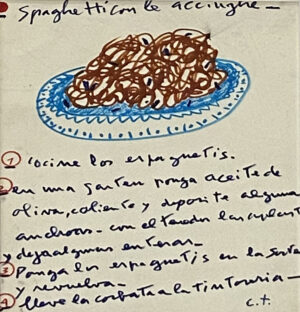 Spaghetti con le acciughe -
1 Cocine los espaguetis.
2 en una sarten ponga aceite de
oliva, caliente y deposite algunas
anchoas - con el tenedor las aplasta
y deja algunas enteras -
3 Ponga los espaguetis en la sarten
y revuelva -
4 lleve la corbata a la tintorería -
C.T.